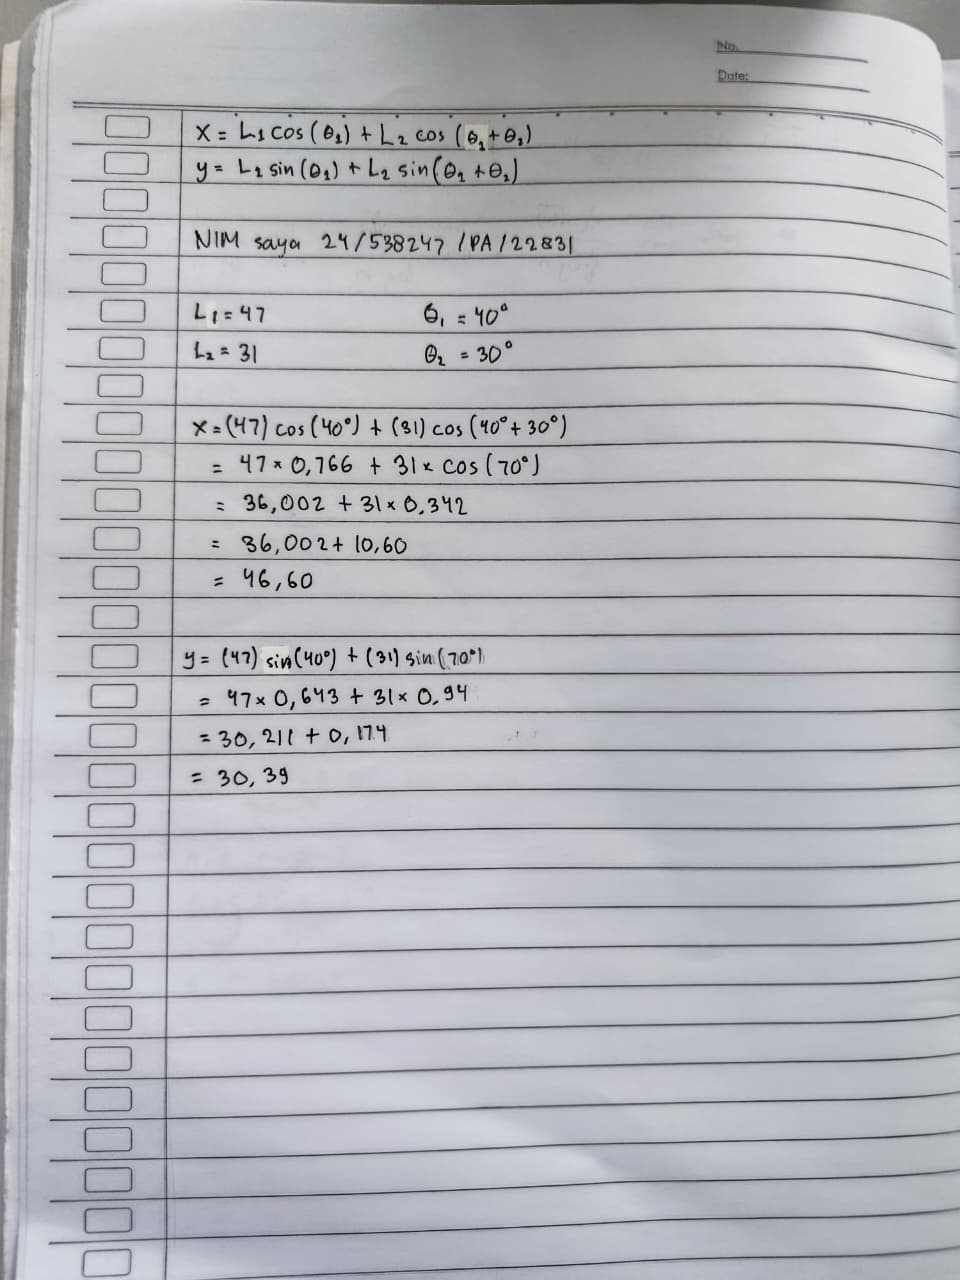 No.
Date:
x = L1 cos (θ1) + L2 cos (θ1 + θ2)
y = L1 sin (θ1) + L2 sin (θ1 + θ2)
NIM saya 24/538247/PA/22831
L1 = 47 θ1 = 40°
L2 = 31 θ2 = 30°
x = (47) cos (40°) + (31) cos (40° + 30°)
= 47 × 0,766 + 31 × cos (70°)
= 36,002 + 31 × 0,342
= 36,002 + 10,60
= 46,60
y = (47) sin (40°) + (31) sin (70°)
= 47 × 0,643 + 31 × 0,94
= 30,211 + 0,174
= 30,39